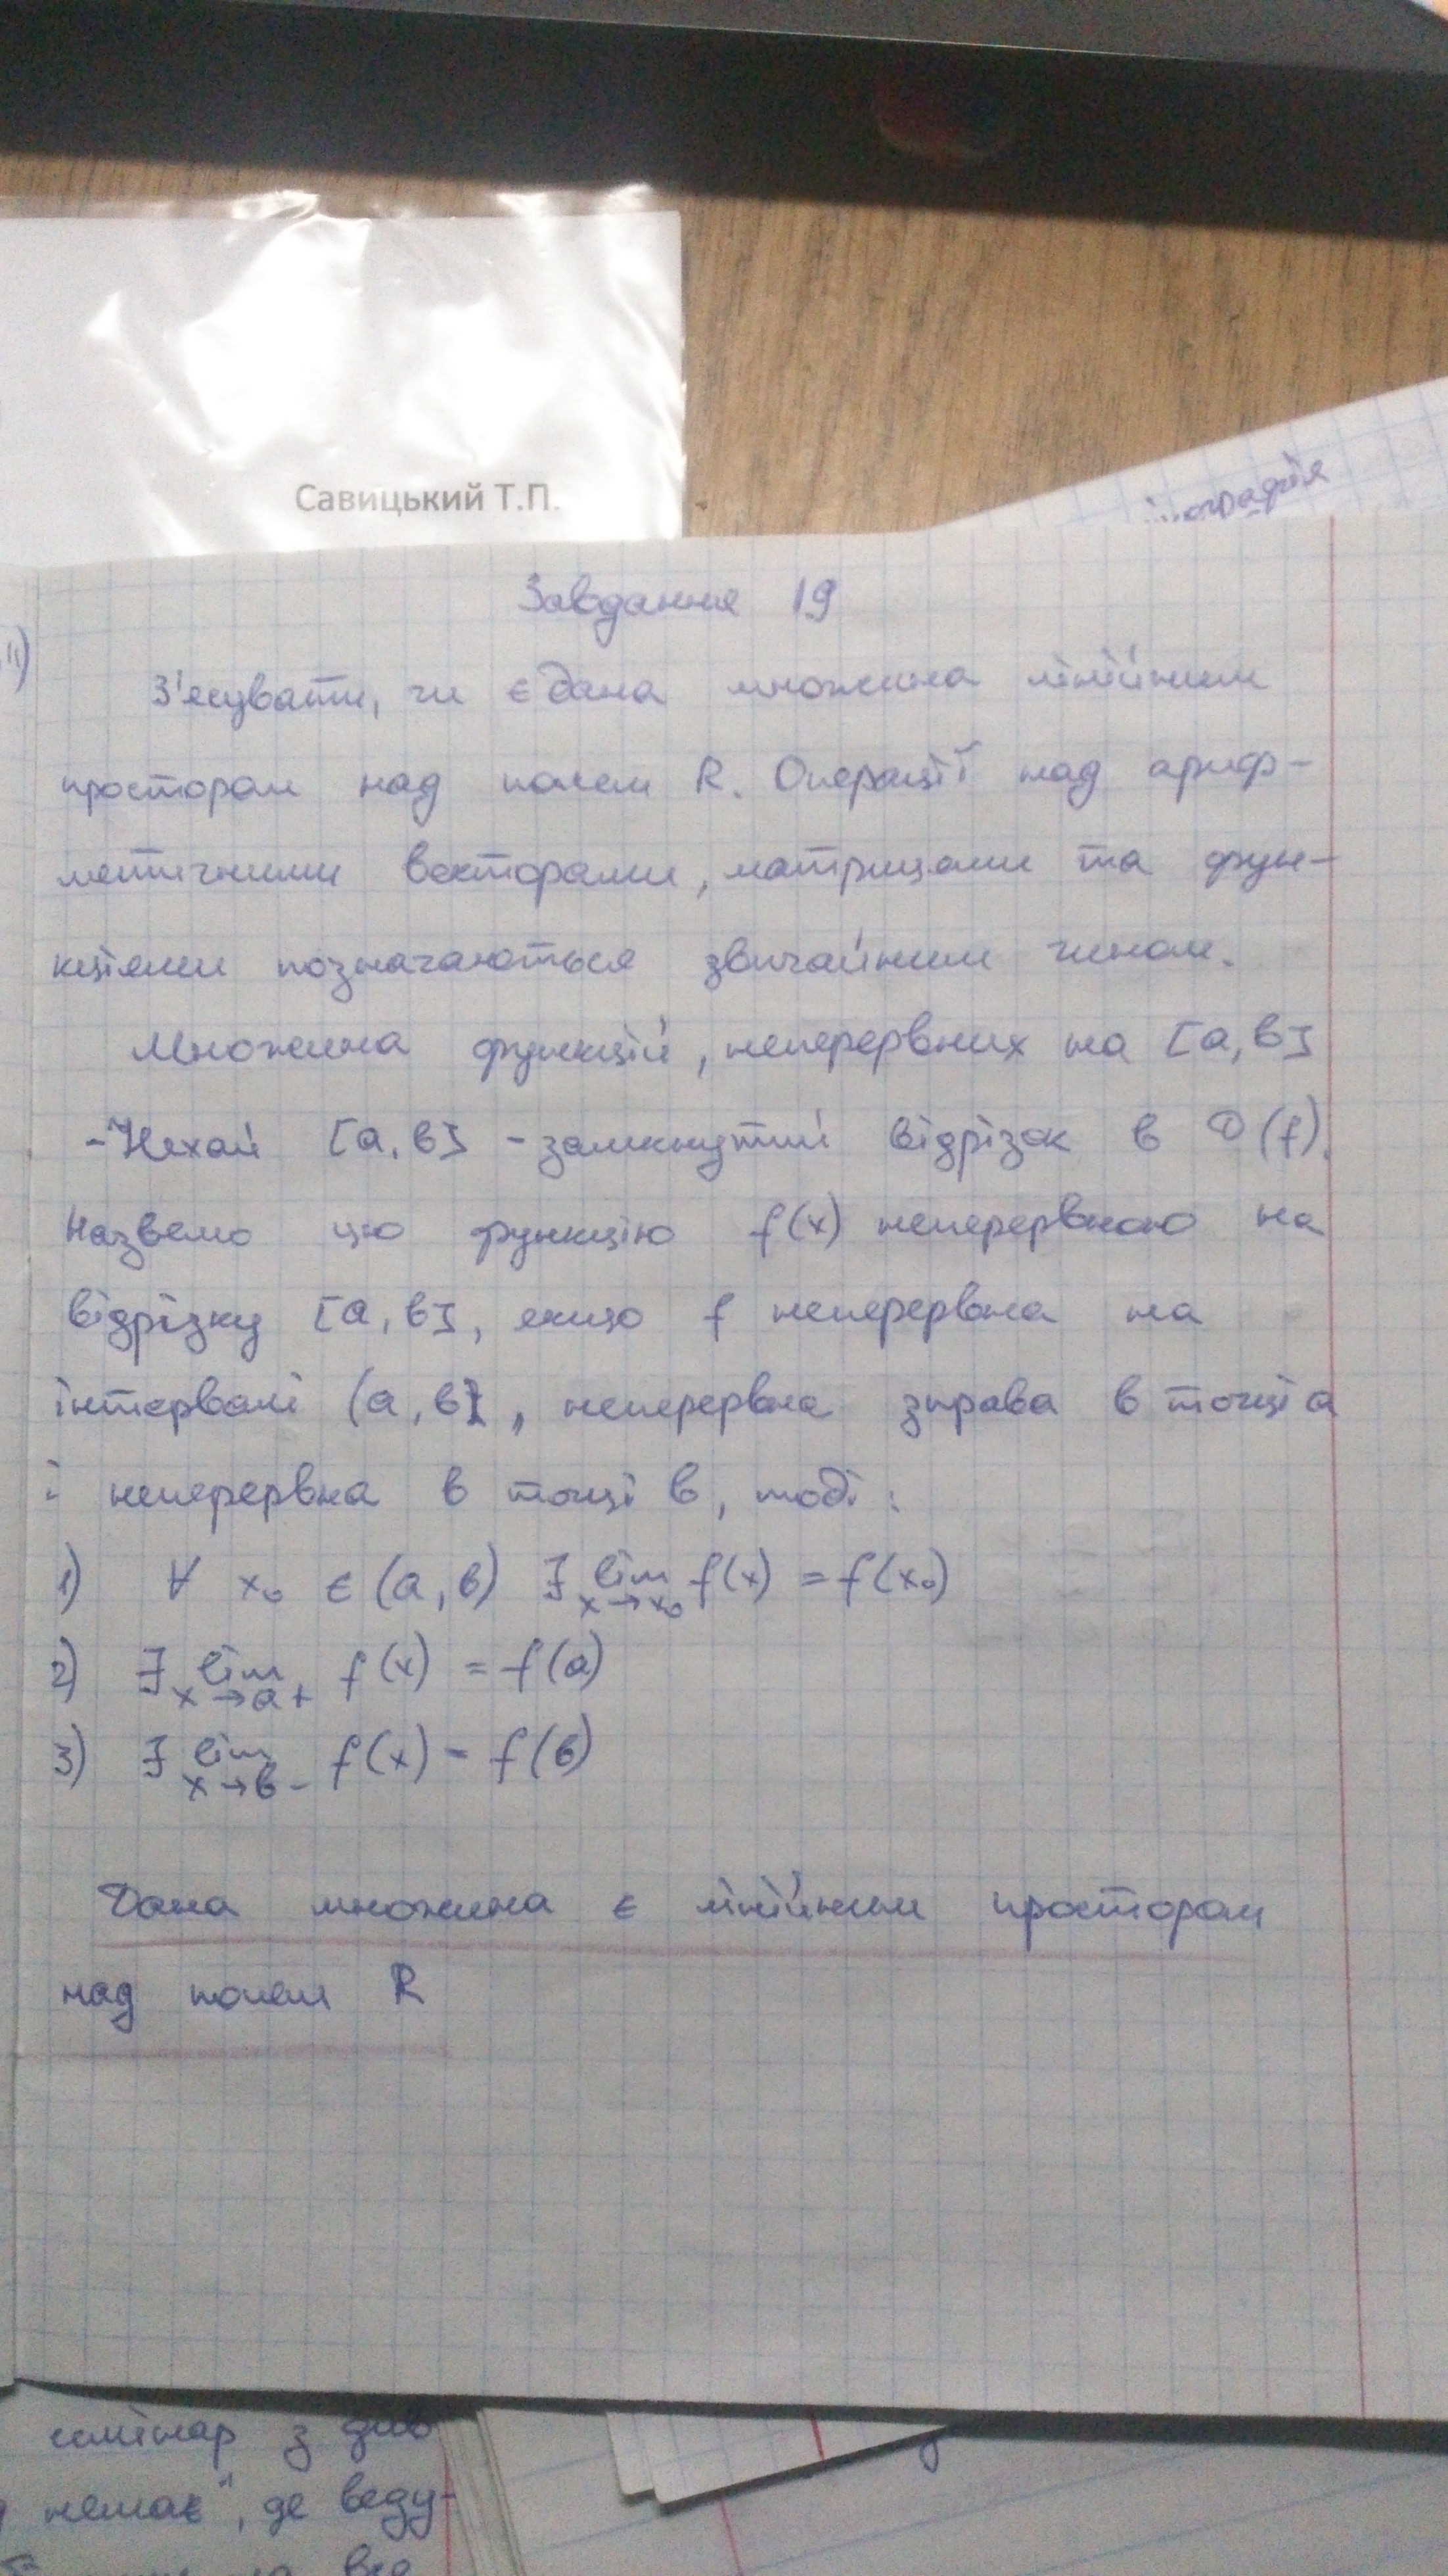 Савицький Т.П.
Завдання 19
З'ясувати, чи є дана множина лінійним
простором над полем R. Операції над ариф-
метичними векторами, матрицами та фун-
кціями позначаються звичайним чином.
Множина функцій, неперервних на [a, b]
- Нехай [a, b] - замкнутий відрізок в D(f).
Назвемо цю функцію f(x) неперервною на
відрізку [a, b], якщо f неперервна на
інтервалі (a, b), неперервна справа в точці a
і неперервна в точці b, тоді:
1) ∀ x₀ ∈ (a, b) ∃ lim f(x) = f(x₀)
x→x₀
2) ∃ lim f(x) = f(a)
x→a+
3) ∃ lim f(x) = f(b)
x→b-
Дана множина є лінійним простором
над полем R
семінар з
немає", де веду-